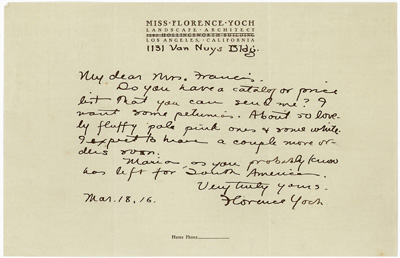 MISS · FLORENCE · YOCH
LANDSCAPE · ARCHITECT
1131 Van Nuys Bldg.
LOS ANGELES, · CALIFORNIA
My dear Mrs. Francis.
Do you have a catalog or price
list that you can send me? I
want some petunias. About 50 love-
ly fluffy pale pink ones & some white.
I expect to have a couple more or-
ders soon.
Maria as you probably know
has left for South America.
Very truly yours.
Mar. 18, 16. Florence Yoch
Home Phone